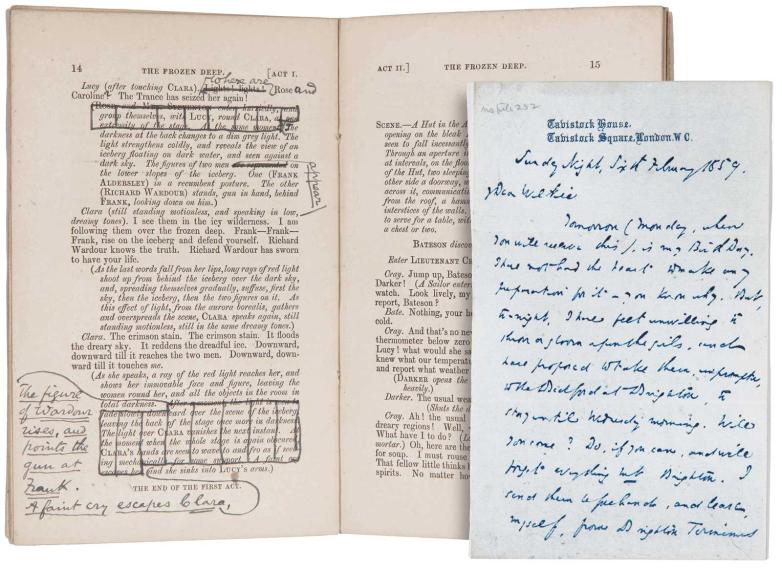 14 THE FROZEN DEEP. [ACT I.
Where are
Lucy (after touching CLARA). Lights! lights! (Rose and
Caroline The Trance has seized her again!
(ROSE and MRS. STEEVENS enter hurriedly, and
group themselves, with LUCY, round CLARA, at one
extremity of the stage. At the same moment The
darkness at the back changes to a dim grey light. The
light strengthens coldly, and reveals the view of an
iceberg floating on dark water, and seen against a
dark sky. The figures of two men are represented on
appear
the lower slopes of the iceberg. One (FRANK
ALDERSLEY) in a recumbent posture. The other
(RICHARD WARDOUR) stands, gun in hand, behind
FRANK, looking down on him.)
Clara (still standing motionless, and speaking in low,
dreamy tones). I see them in the icy wilderness. I am
following them over the frozen deep. Frank—Frank—
Frank, rise on the iceberg and defend yourself. Richard
Wardour knows the truth. Richard Wardour has sworn
to have your life.
(As the last words fall from her lips, long rays of red light
shoot up from behind the iceberg over the dark sky,
and, spreading themselves gradually, suffuse, first the
sky, then the iceberg, then the two figures on it. As
this effect of light, from the aurora borealis, gathers
and overspreads the scene, CLARA speaks again, still
standing motionless, still in the same dreamy tones.)
Clara. The crimson stain. The crimson stain. It floods
the dreary sky. It reddens the dreadful ice. Downward,
downward till it reaches the two men. Downward, down-
ward till it touches me.
(As she speaks, a ray of the red light reaches her, and
shows her immovable face and figure, leaving the
women round her, and all the objects in the room in
total darkness. After a moment the light is again
heard over the scene of the iceberg,
leaving the back of the stage once more in darkness.
The light over CLARA vanishes the next instant. At
the moment when the whole stage is again obscured
CLARA's hands are seen to wave to and fro as if seek-
ing mechanically for some support. A faint cry
escapes her, and she sinks into LUCY's arms.)
THE END OF THE FIRST ACT.
The figure
of Wardour
rises, and
points the
gun at
Frank.
A faint cry escapes Clara,
ACT II.] THE FROZEN DEEP. 15
SCENE.—A Hut in the A
opening on the bleak
seen to fall incessantly
Through an aperture in
at intervals, on the floor
of the Hut, two sleeping
other side a doorway, w
across it, communicati
from the roof, a hamm
interstices of the walls.
to serve for a table, with
a chest or two.
BATESON disco
Enter LIEUTENANT CR
Cray. Jump up, Bateso
Darker! (A Sailor enters
watch. Look lively, my
report, Bateson?
Bate. Nothing, your ho
cold.
Cray. And that's no ne
thermometer below zero
Lucy! what would she sa
knew what our temperatu
and report what weather
(DARKER opens the
heavily.)
Darker. The usual wea
(Shuts the d
Cray. Ah! the usual
dreary regions! Well,
What have I to do? (Lo
mortar.) Oh, here are the
for soup. I must rouse
That fellow little thinks h
spirits. No matter how
Tavistock House,
Tavistock Square, London. W.C.
Sunday Night, Sixth February 1859.
My Dear Wilkie
Tomorrow (Monday, when
you will receive this), is my Birth Day.
I have not had the heart to make any
preparation for it – you know why. But,
tonight, I have feel unwilling to
throw a gloom upon the girls, and
have proposed to take them, impromptu,
to the Bedford at Brighton to
stay until Wednesday morning. Will
you come? Do, if you can, and we'll
forget everything but Brighton. I
send them beforehand, and leave
myself, from Brighton Terminus